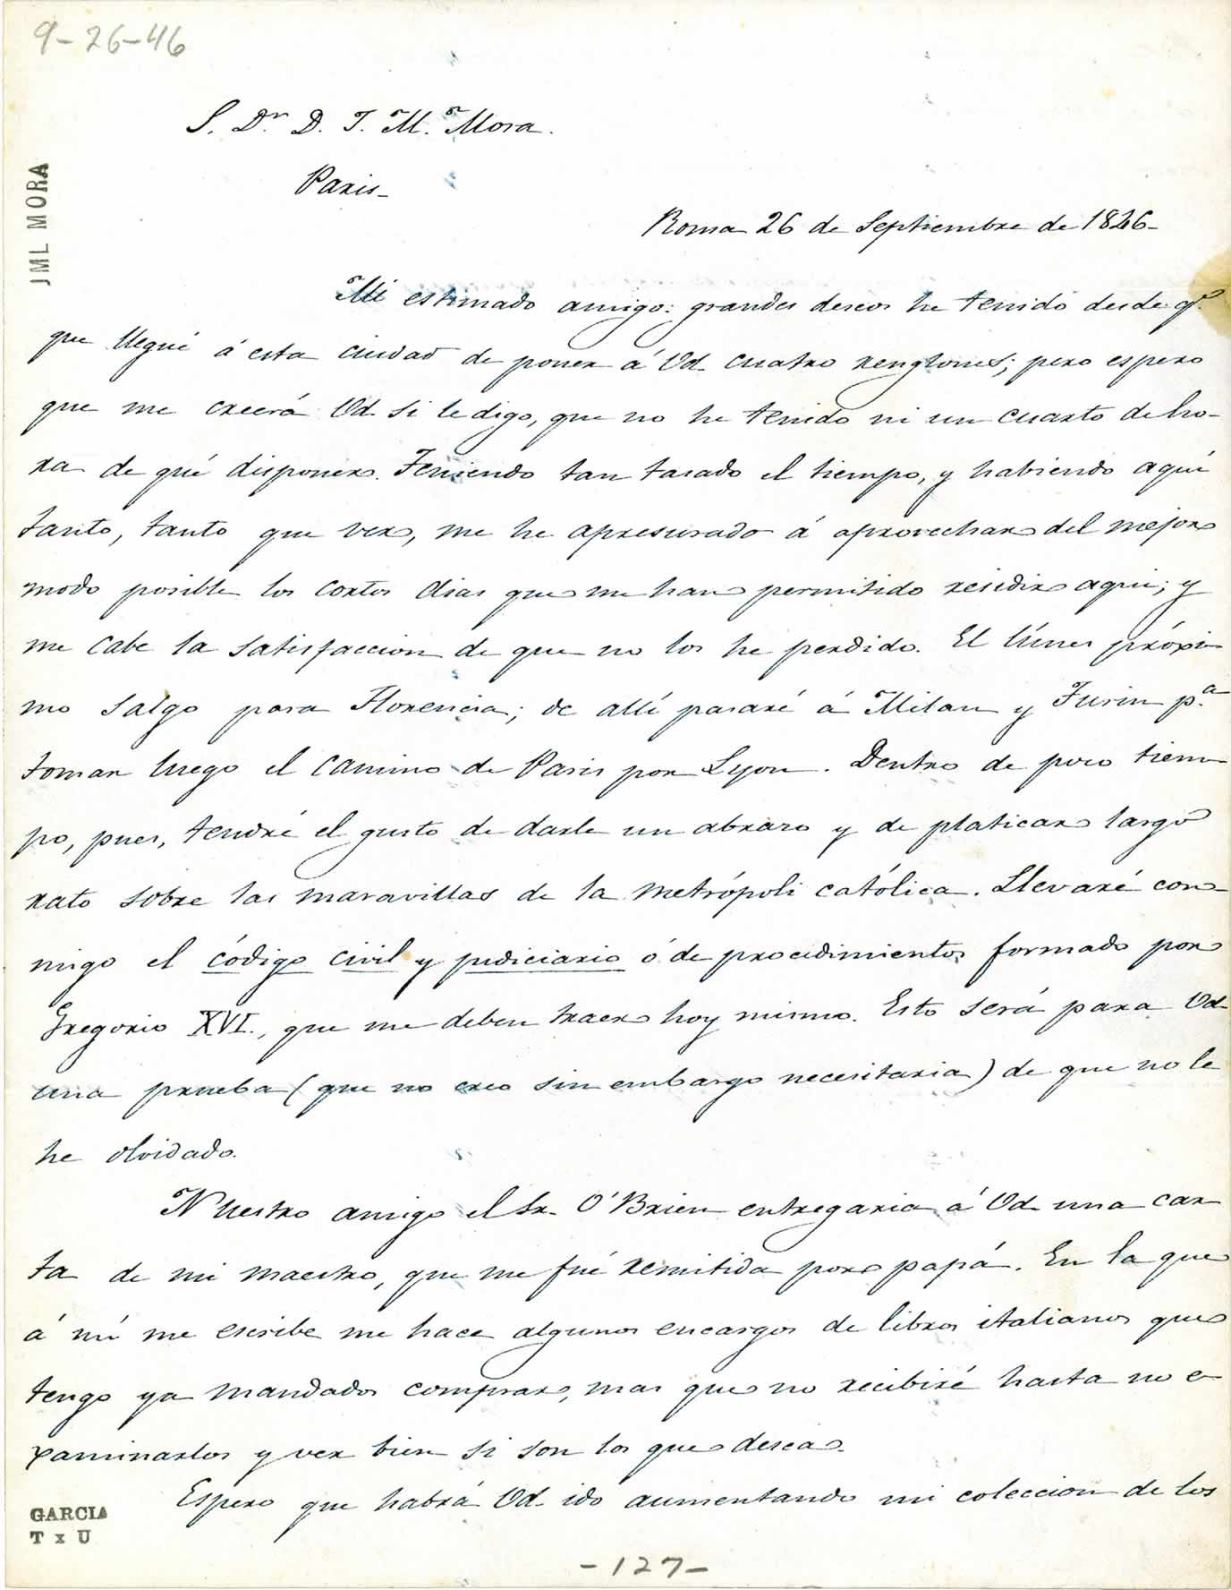 9-26-46
S. Dr. D. J. M. Mora.
JML MORA
Paris_
Roma 26 de Septiembre de 1846_
Mi estimado amigo: grandes deseos he tenido desde q.e
que llegué á esta ciudad de poner á Vd. cuatro renglones; pero espero
que me creerá Vd. si le digo, que no he tenido ni un cuarto de ho-
ra de qué disponer. Teniendo tan tasado el tiempo, y habiendo aquí
tanto, tanto que ver, me he apresurado á aprovechar del mejor
modo posible los cortos dias que me han permitido residir aqui; y
me cabe la satisfaccion de que no los he perdido. El lúnes próxi-
mo salgo para Florencia; de allí pasaré á Milan y Turin p.a
tomar luego el camino de Paris por Lyon. Dentro de poco tiem-
po, pues, tendré el gusto de darle un abrazo y de platicar largo
rato sobre las maravillas de la metrópoli católica. Llevaré con-
migo el código civil y judiciario ó de procedimientos formado por
Gregorio XVI., que me deben traer hoy mismo. Esto será para Vd.
una prueba (que no creo sin embargo necesitaria) de que no le
he olvidado.
Nuestro amigo el Sr. O'Brien entregaria á Vd. una car
ta de mi maestro, que me fué remitida por papá. En la que
á mí me escribe me hace algunos encargos de libros italianos que
tengo ya mandados comprar, mas que no recibiré hasta no e-
xaminarlos y ver bien si son los que desea.
Espero que habrá Vd. ido aumentando mi coleccion de los
GARCIA
T x U
-127-